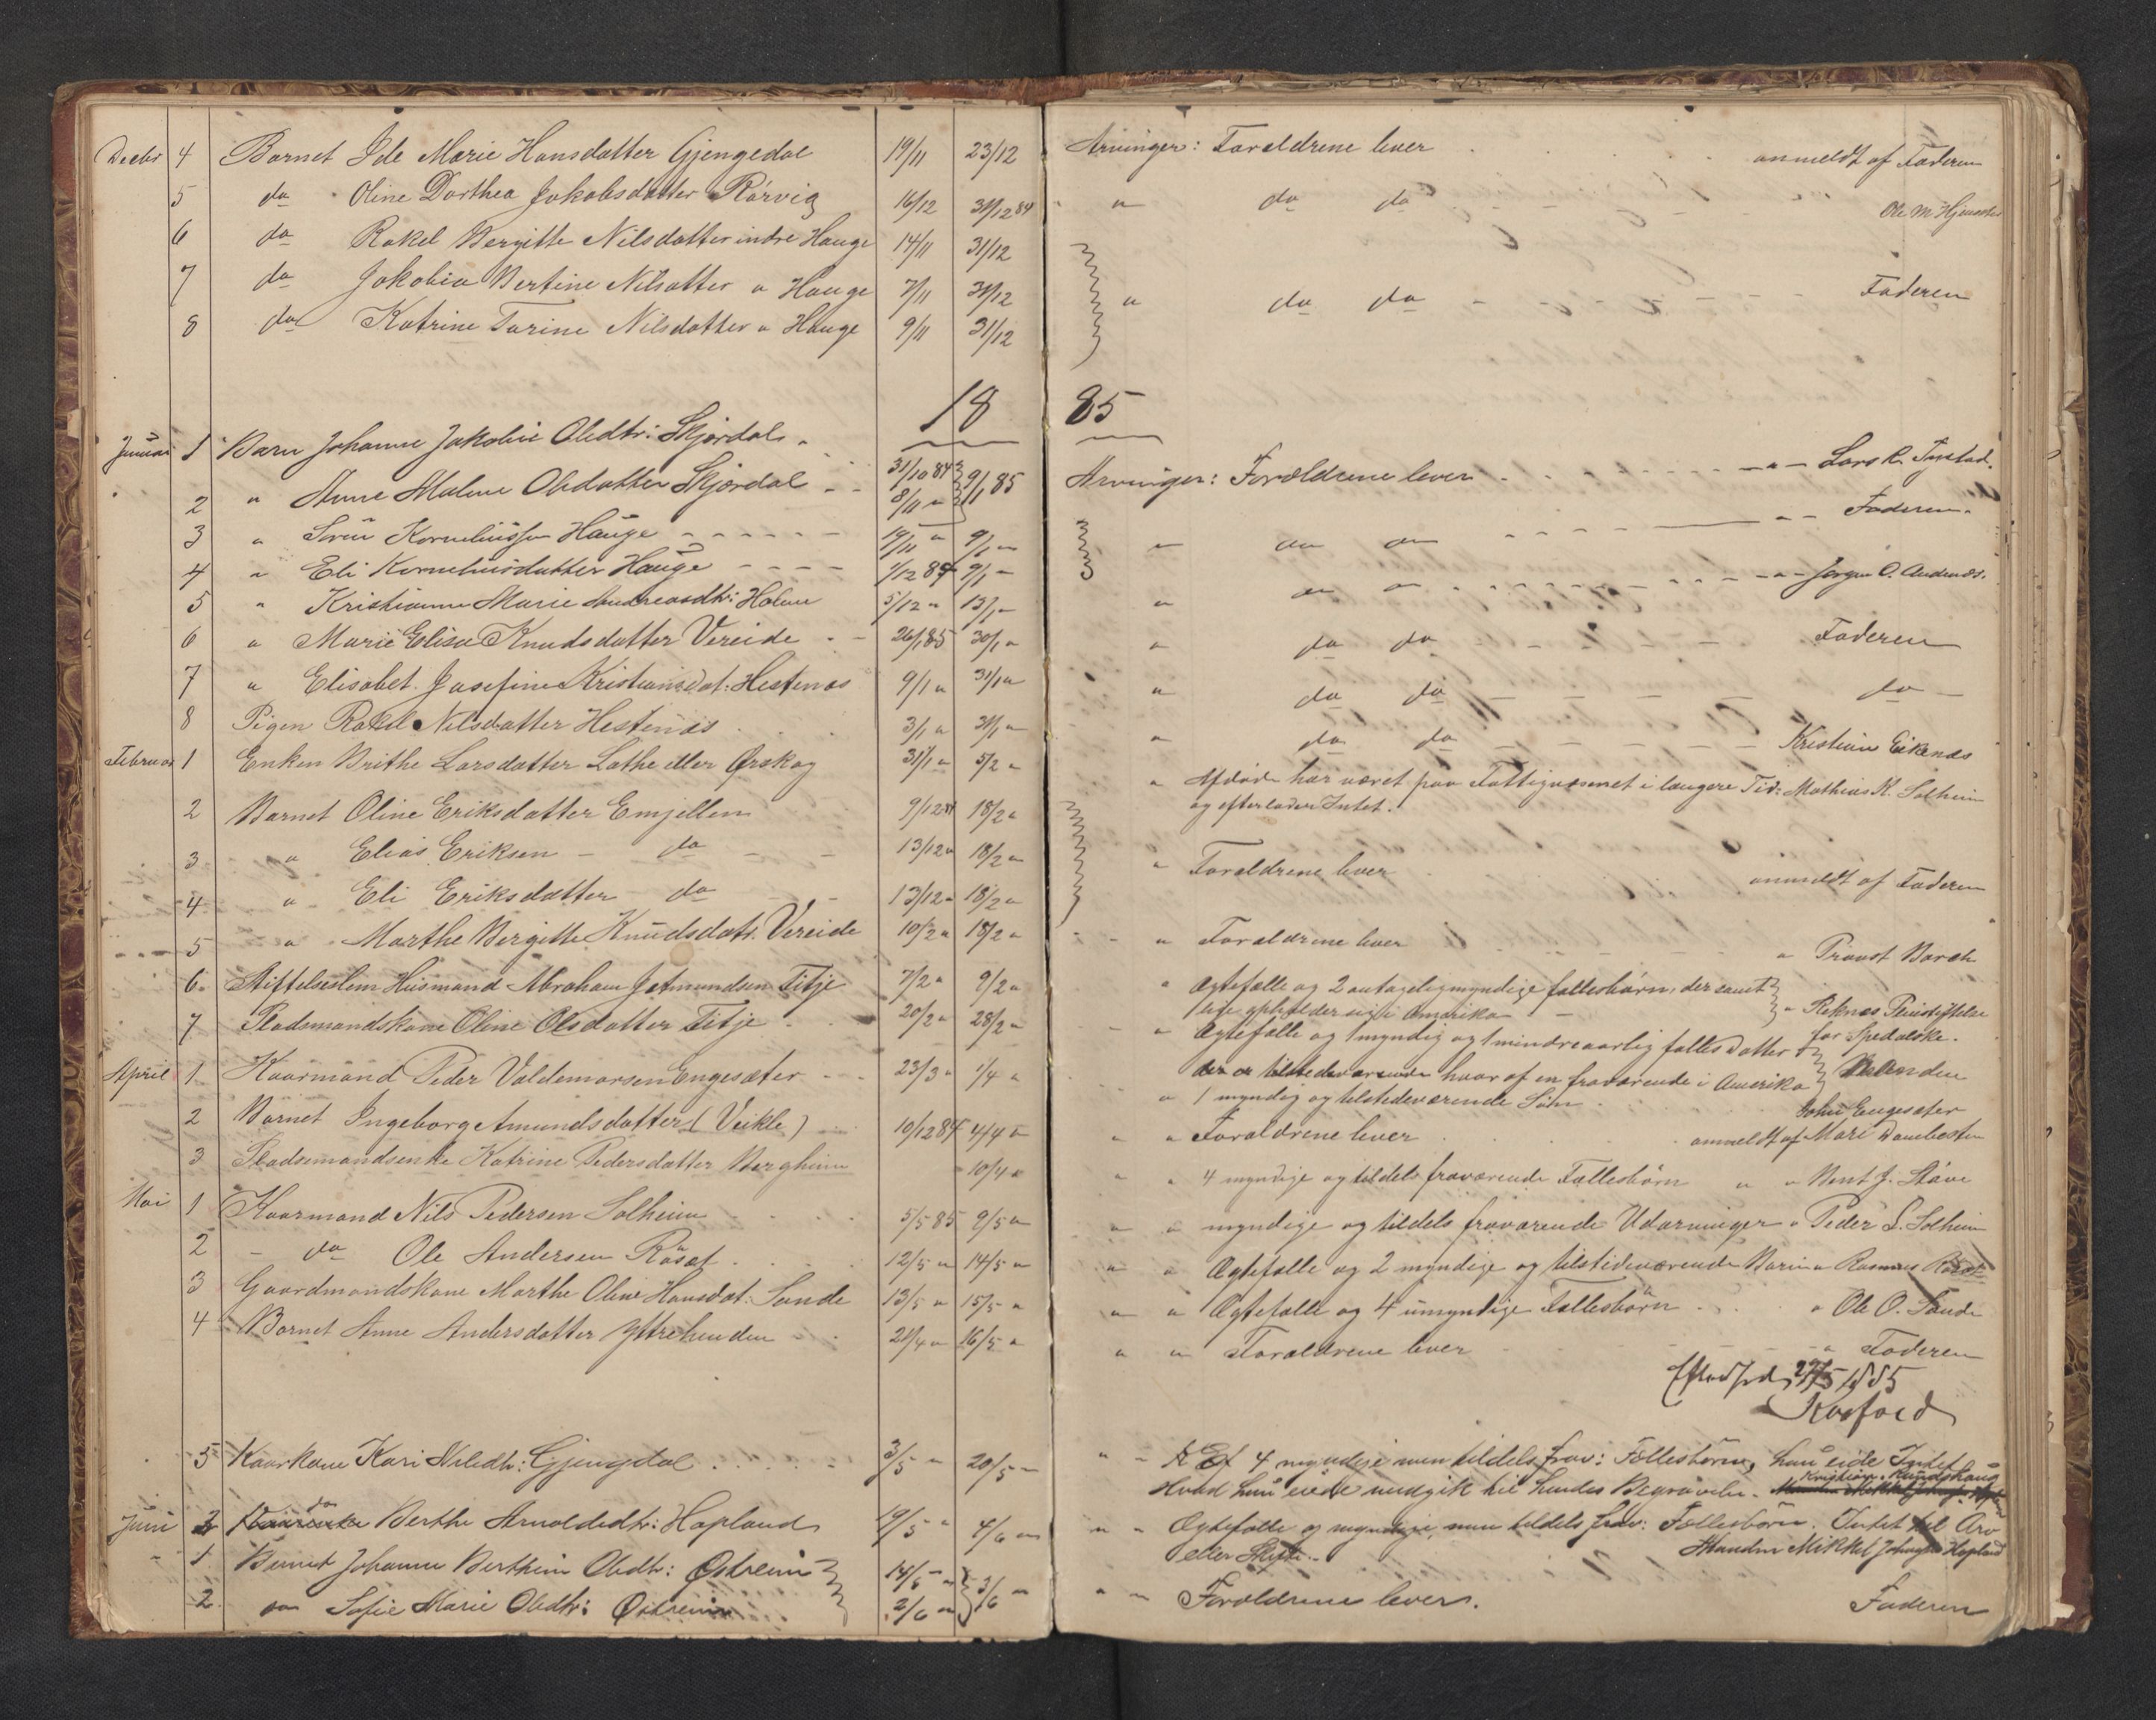 Decbr 4 Barnet Ide Marie Hansdatter Gjengedal 19/11 23/12 Arvinger: Forældrene lever anmeldt af Faderen
5 do Oline Dorthea Jakobsdatter Rørvig 16/12 31/12 84 " do do Ole M
6 do Rakel Bergitte Nilsdatter indre Hauge 14/11 31/12
7 do Jakobia Bertine Nilsdatter " Hauge 7/11 31/12 " do do Faderen
8 do Katrine Turine Nilsdatter " Hauge 9/11 31/12
1885
Januar 1 Barn Johanne Jakobie Olsdtr: Skjærdal 31/10 84 9/1 85 Arvinger: Forældrene lever " Lars R.
2 " Anne Malene Olsdatter Skjærdal 8/11 "
3 " Hauge 19/11 " 9/1 " " do do " Faderen
4 " Eli Korneliusdatter Hauge 1/12 84 9/1 "
5 " Kristianne Marie Andreasdtr: Holme 5/12 " 13/1 " " do do " Jørgen O. Andenæs.
6 " Marie Elisa Knudsdatter Vereide 26/1 85 30/1 " " do do Faderen
7 " Elisabet Josefine Kristiansdat: Hestenæs 9/1 " 31/1 " " do do do
8 Pigen Rakel Nilsdatter Hestenæs 3/1 " 31/1 " " do do Kristian Eikenæs
Februar 1 Enken Brithe Larsdatter Lothe eller Ørskog 31/1 " 5/2 " " Afdøde har været paa Fattigvæsenet i længere Tid: Mathias K. Solheim
og efterlader Intet.
2 Barnet Oline Eriksdatter Emjellen 9/12 84 18/2 "
3 " Elias Eriksen do 13/12 " 18/2 " " Forældrene lever anmeldt af Faderen
4 " Eli Eriksdatter do 13/12 " 18/2 "
5 " Marthe Bergitte Knudsdatr. Vereide 10/2 " 18/2 " " Forældrene lever " Provst Barch
6 Stiftelseslem Husmand Abraham Jetmundsen Fitje 7/2 " 9/2 " " Ægtefælle og 2 antageligmyndige fællesbørn, der samt-
lige opholder sig i Amerika " Reknæs Pleiestiftelse
for Spedalske.
7 Pladsmandskone Oline Olsdatter Fitje 20/2 " 28/2 " " Ægtefælle og 1 myndig og 1 mindreaarlig fælles Datter
der er tilstedeværende hvoraf en fraværende i Amerika Manden
April 1 Kaarmand Peder Valdemarsen Engesæter 23/3 " 1/4 " " 1 myndig og tilstedeværende Søn John Engesæter
2 Barnet Ingeborg Amundsdatter (Veikle) 10/12 84 4/4 " " " Forældrene lever anmeldt af Mari
3 Pladsemandsenke Katrine Pedersdatter Bergheim 10/4 " " " 4 myndige og tildels fraværende Fællesbørn " " Bent J. Støve
Mai 1 Kaarmand Nils Pedersen Solheim 5/5 85 9/5 " " " myndige og tildels fraværende Udarvinger " Peder S. Solheim
2 do Ole Andersen Røset 12/5 " 14/5 " " " Ægtefælle og 2 myndige og tilstedeværende Børn " Rasmus Røset
3 Gaardmandskone Marthe Oline Hansdat. Sande 13/5 " 15/5 " " " Ægtefælle og 4 umyndige Fællesbørn " Ole O. Sande
4 Barnet Anne Andersdatter Ytrehenden 21/4 " 16/5 " " " Forældrene lever " Faderen
29/5 1885
5 Kaarkone Kari Nilsdtr: Gjengdal 3/5 " 20/5 " " " 4 myndige men tildels frav: Fællesbørn, hun eide Intet
Hvad hun eiede medgik til hendes Begravelse. Kristian
Juni do Berthe Arnoldsdtr: Hopland 19/5 " 4/6 " " " Ægtefælle og myndige, men tildels frav: Fællesbørn. Intet til Arv
eller Skifte. Manden Mikkel Hopland
1 Barnet Johanne Berthine Olsdtr: Østreim 14/5 " 3/6 " " " Forældrene lever. Faderen
2 do Sofie Marie Olsdtr: Østreim 2/6 "